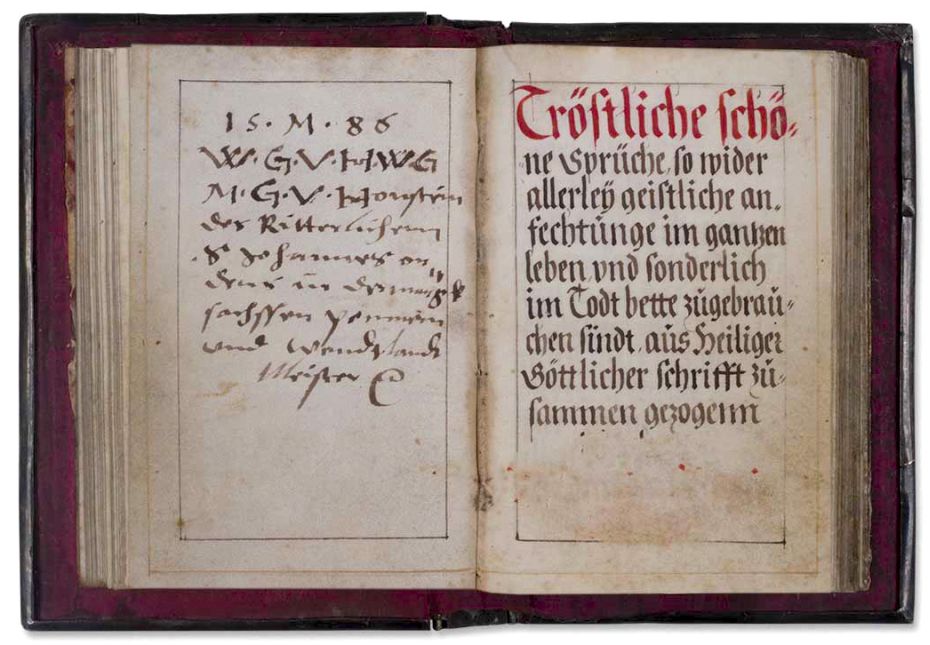 15 · M · 86
W · G · V · H · W G
M · G · V · Honstein
des Ritterlichenn
S Johannes or
denns in der marck
sachssen pommern
und Wendtlandt
Meister
Tröstliche schö-
ne Sprüche, so wider
allerleÿ geistliche an-
fechtunge im gantzen
leben vnd sonderlich
im Todt bette zugebrau-
chen sindt, aus Heiliger
Göttlicher schrifft zu-
sammen gezogenn